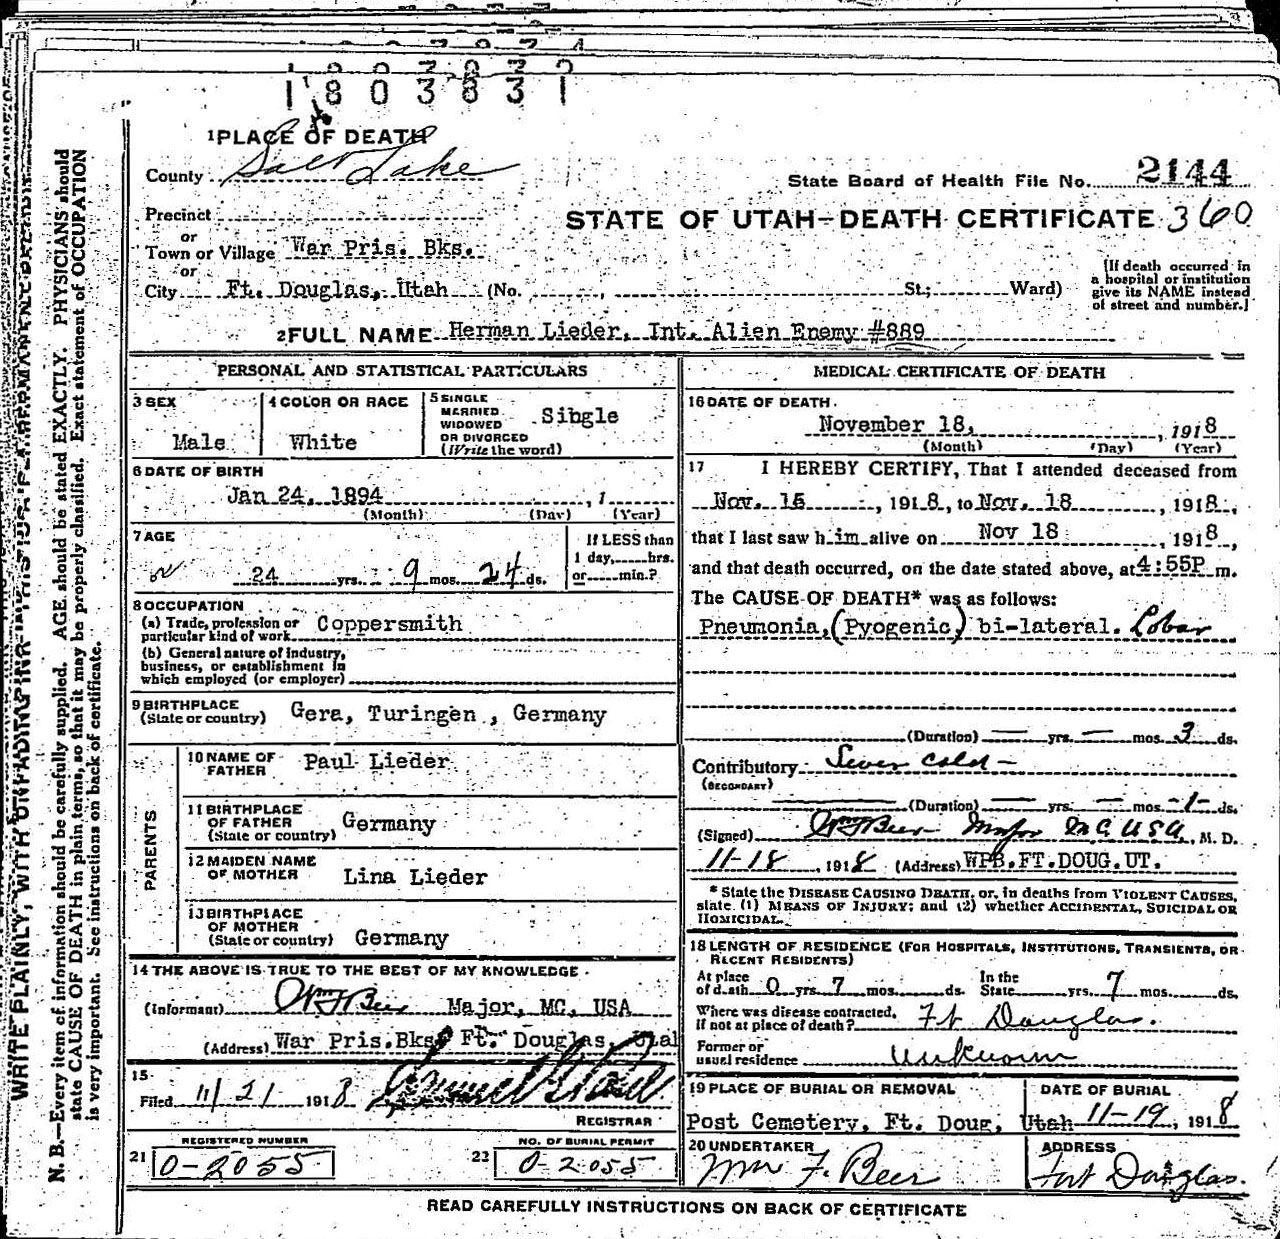 1803831
1 PLACE OF DEATH
County Salt Lake
State Board of Health File No. 2144
Precinct
or
STATE OF UTAH—DEATH CERTIFICATE 360
Town or Village War Pris. Bks.
or
City Ft. Douglas, Utah (No. , St.; Ward)
[If death occurred in
a hospital or institution
give its NAME instead
of street and number.]
2 FULL NAME Herman Lieder, Int. Alien Enemy #889
PERSONAL AND STATISTICAL PARTICULARS
3 SEX
Male
4 COLOR OR RACE
White
5 SINGLE
MARRIED
WIDOWED
OR DIVORCED
(Write the word)
Sibgle
6 DATE OF BIRTH
Jan 24, 1894 , 1
(Month) (Day) (Year)
7 AGE
24 yrs. 9 mos. 24 ds.
If LESS than
1 day, hrs.
or min.?
8 OCCUPATION
(a) Trade, profession or
particular kind of work Coppersmith
(b) General nature of industry,
business, or establishment in
which employed (or employer)
9 BIRTHPLACE
(State or country) Gera, Turingen , Germany
PARENTS
10 NAME OF
FATHER Paul Lieder
11 BIRTHPLACE
OF FATHER
(State or country) Germany
12 MAIDEN NAME
OF MOTHER Lina Lieder
13 BIRTHPLACE
OF MOTHER
(State or country) Germany
14 THE ABOVE IS TRUE TO THE BEST OF MY KNOWLEDGE
(Informant) Wm F Beer Major, MC, USA
(Address) War Pris.Bks, Ft. Douglas, Utah
15
Filed 11/21 1918
REGISTRAR
REGISTERED NUMBER
21 0-2055
NO. OF BURIAL PERMIT
22 0-2055
MEDICAL CERTIFICATE OF DEATH
16 DATE OF DEATH
November 18, , 1918
(Month) (Day) (Year)
17 I HEREBY CERTIFY, That I attended deceased from
Nov. 15 , 1918, to Nov. 18 , 1918,
that I last saw him alive on Nov 18 , 1918,
and that death occurred, on the date stated above, at 4:55P m.
The CAUSE OF DEATH* was as follows:
Pneumonia, (Pyogenic) bi-lateral. Lobar
(Duration) — yrs. — mos. 3 ds.
Contributory Sever cold —
(SECONDARY)
(Duration) — yrs. — mos. -1- ds.
(Signed) Wm F Beer Major M C USA, M. D.
11-18, 1918 (Address) WPB.FT.DOUG.UT.
* State the DISEASE CAUSING DEATH, or, in deaths from VIOLENT CAUSES,
state (1) MEANS OF INJURY; and (2) whether ACCIDENTAL, SUICIDAL OR
HOMICIDAL.
18 LENGTH OF RESIDENCE (FOR HOSPITALS, INSTITUTIONS, TRANSIENTS, OR
RECENT RESIDENTS)
At place
of death 0 yrs. 7 mos. ds.
In the
State yrs. 7 mos. ds.
Where was disease contracted,
if not at place of death? Ft Douglas.
Former or
usual residence Unknown
19 PLACE OF BURIAL OR REMOVAL
Post Cemetery, Ft. Doug, Utah
DATE OF BURIAL
11-19, 1918
20 UNDERTAKER
Wm F. Beer
ADDRESS
Fort Douglas.
READ CAREFULLY INSTRUCTIONS ON BACK OF CERTIFICATE
N. B.—Every item of information should be carefully supplied. AGE should be stated EXACTLY. PHYSICIANS should
state CAUSE OF DEATH in plain terms, so that it may be properly classified. Exact statement of OCCUPATION
is very important. See instructions on back of certificate.